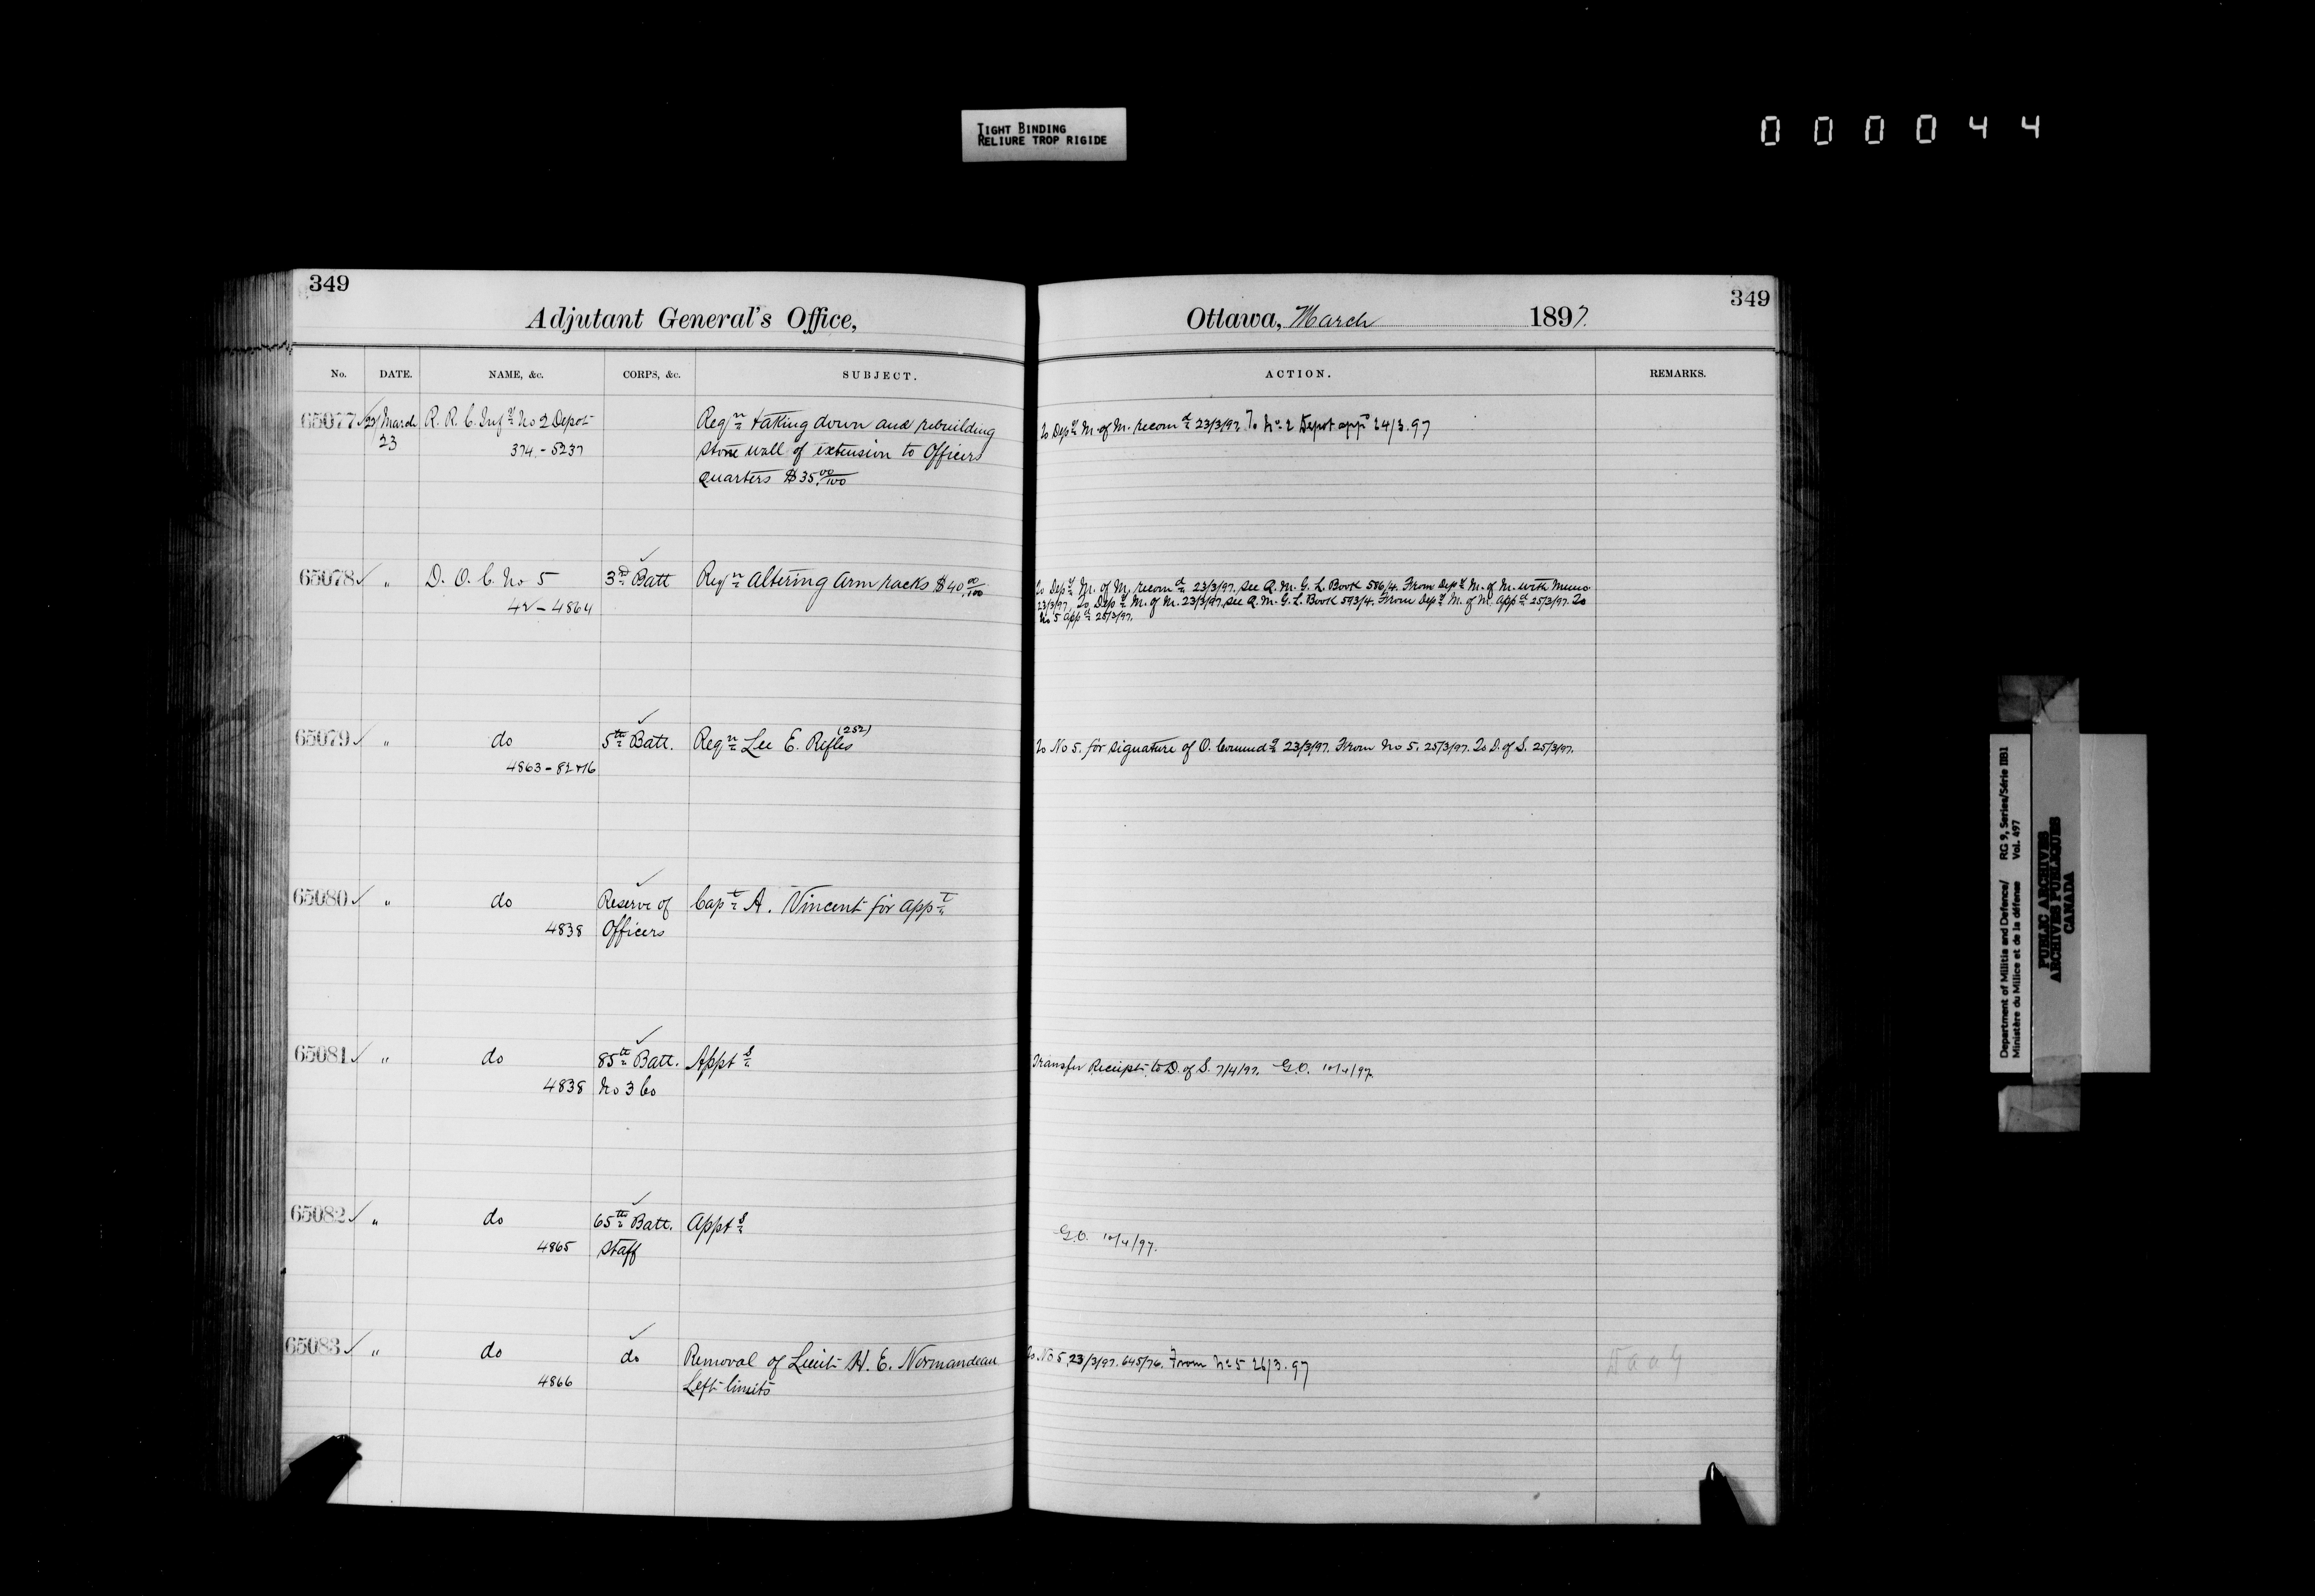 TIGHT BINDING
RELIURE TROP RIGIDE
000044
349
Adjutant General's Office,
No. DATE. NAME, &c. CORPS, &c. SUBJECT.
65077 March R. R. C. Infy No 2 Depot Reqn taking down and rebuilding
23 374 - 5237 stone wall of extension to Officers
quarters $35.00/100
65078 " D. O. C. No 5 3rd Batt Reqn altering arm racks $40.00/100
42 - 4864
65079 " do 5th Batt. Reqn Lee E. Rifles (252)
4863 -
65080 " do Reserve of Capt A. Vincent for appt
4838 Officers
65081 " do 85th Batt. Appts
4838 No 3 Co
65082 " do 65th Batt. Appts
4865 Staff
65083 " do do Removal of Lieut H. E. Normandeau
4866 Left limits
349
Ottawa, March 1897.
ACTION. REMARKS.
To Depy M. of M. recomd 23/3/97. To No 2 Depot appd 24/3.97
To Depy M. of M. recomd 23/3/97. see Q. M. G. L. Book 586/4. From Depy M. of M. with Memo
23/3/97. To Depy M. of M. 23/3/97. see Q. M. G. L. Book 593/4. From Depy M. of M. appd 25/3/97. To
No 5 appd 25/3/97.
To No 5. for signature of O. Commdg 23/3/97. From No 5. 25/3/97. To D. of S. 25/3/97.
Transfer Receipts to D. of S. 7/4/97. G.O. 10/4/97.
G.O. 10/4/97.
To No 5, 23/3/97. 645/76. From No 5 26/3.97
Department of Militia and Defence/ RG 9, Series/Série IIB1
Ministère du Milice et de la défense Vol. 497
PUBLIC ARCHIVES
ARCHIVES PUBLIQUES
CANADA